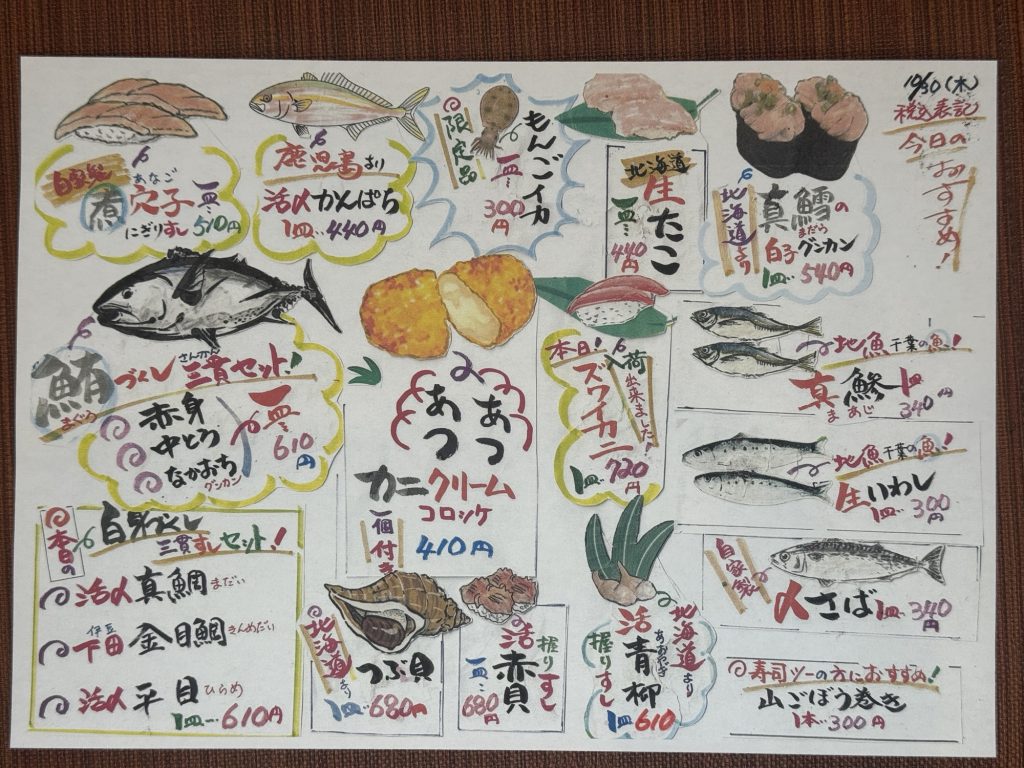 10/30(木)
税込表記
今日の
おすすめ!
自家製
煮
あなご
穴子
にぎりすし
一皿…510円
鹿児島より
活〆かんぱち
1皿…440円
限定品
もんごイカ
一皿…300円
北海道
生たこ
一皿…440円
北海道より
真鱈の
まだら
白子グンカン
1皿…540円
鮪づくし
まぐろ
さんかん
三貫セット!
赤身
中とろ
なかおち
グンカン
一皿…610円
あつあつ
カニクリーム
コロッケ
一個付き
410円
本日!入荷出来ました!
ズワイカニ
1皿…720円
地魚千葉の魚!
真鯵
まあじ
1皿340円
地魚千葉の魚!
生いわし
1皿…300円
本日の
白身づくし
三貫すしセット!
活〆真鯛まだい
伊豆
下田金目鯛きんめだい
活〆平目ひらめ
1皿…610円
北海道より
つぶ貝
1皿…680円
握りすし
活赤貝
一皿…680円
北海道より
活青柳
あおやぎ
握りすし
1皿610
自家製
〆さば1皿…340円
寿司ツーの方におすすめ!
山ごぼう巻き
1本…300円